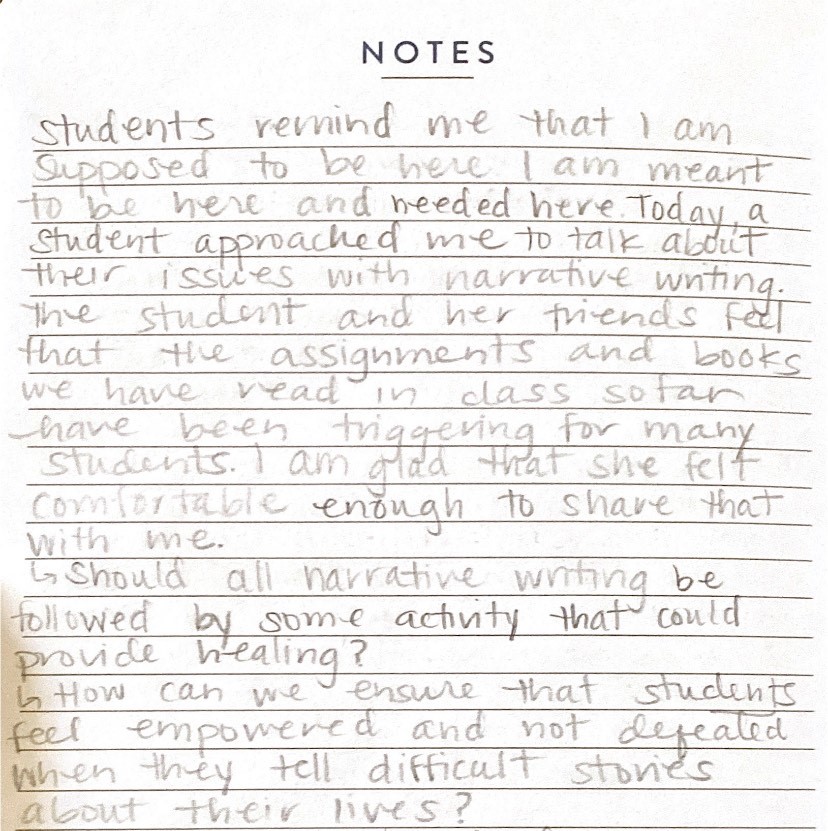 NOTES
students remind me that I am
supposed to be here I am meant
to be here and needed here. Today, a
student approached me to talk about
their issues with narrative writing.
The student and her friends feel
that the assignments and books
we have read in class so far
have been triggering for many
students. I am glad that she felt
comfortable enough to share that
with me.
↳ Should all narrative writing be
followed by some activity that could
provide healing?
↳ How can we ensure that students
feel empowered and not defeated
when they tell difficult stories
about their lives?